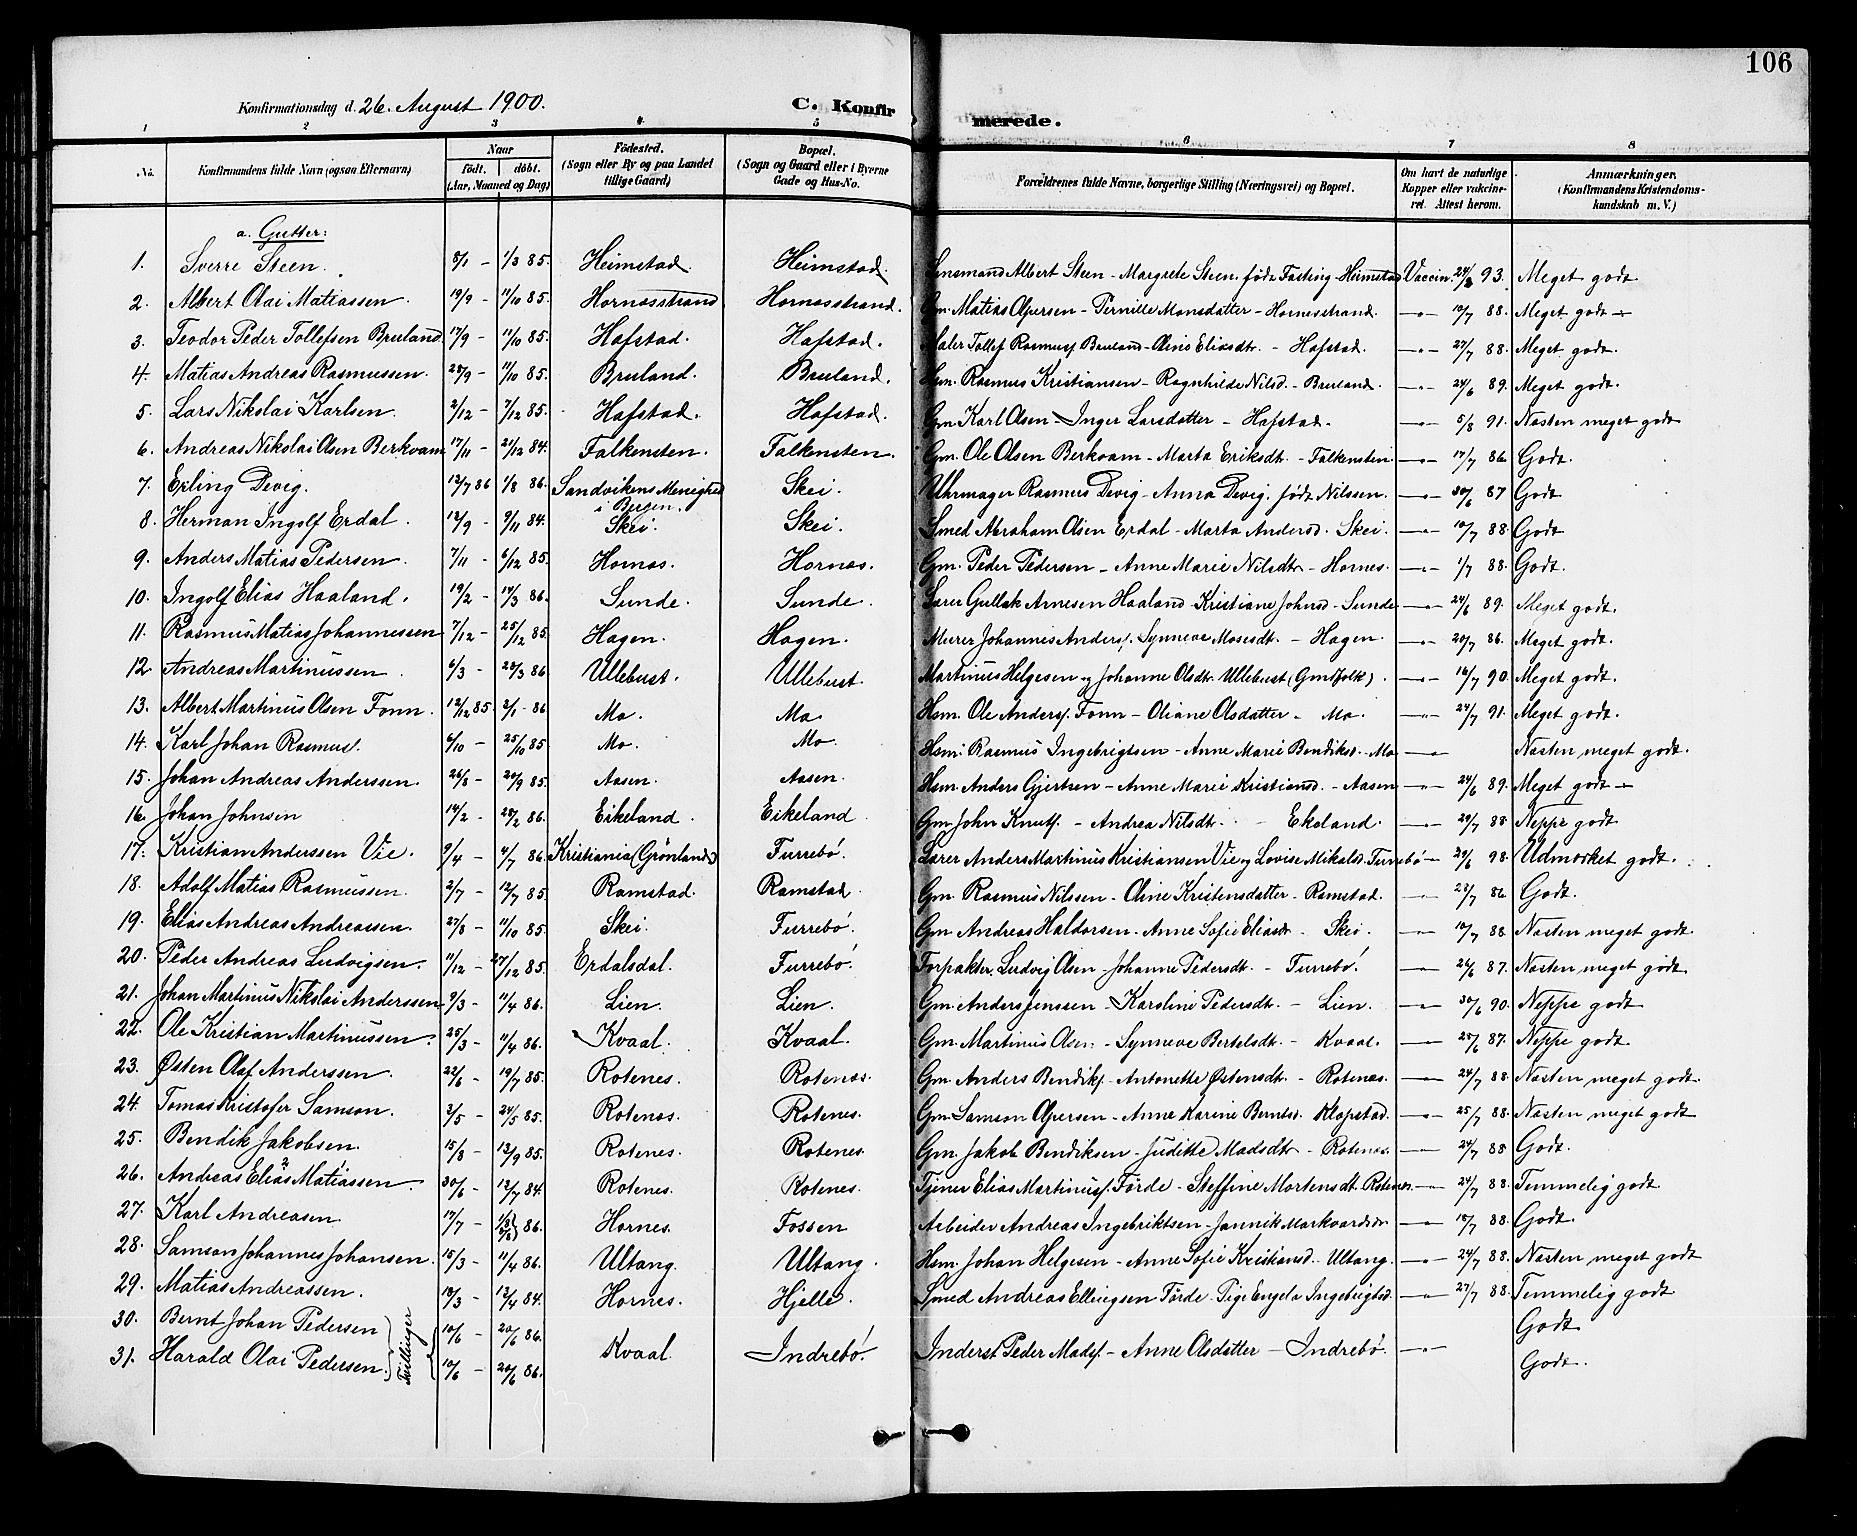 106
Konfirmationsdag d. 26. August 1900. C. Konfirmerede.
1 2 3 4 5 6 7 8
No. Konfirmandens fulde Navn (ogsaa Efternavn) Naar født. døbt. (Aar, Maaned og Dag) Fødested. (Sogn eller By og paa Landet tillige Gaard) Bopæl. (Sogn og Gaard eller i Byerne Gade og Hus-No. Forældrenes fulde Navne, borgerlige Stilling (Næringsvei) og Bopæl. Om havt de naturlige Kopper eller vakcineret. Attest herom. Anmærkninger. (Konfirmandens Kristendomskundskab m. V.)
a. Gutter:
1. Sverre Steen. 8/1 - 1/3 85. Heimstad. Heimstad. Lensmand Albert Steen - Margrete Steen, født Fasting - Heimstad Vaccin. 93. Meget godt
2. Albert Olai Matiassen. 19/9 - 11/10 85. Hornesstrand Hornesstrand. Gm. Matias Apersen - Pernille Monsdatter - Hornesstrand. -"- 10/7 88. Meget godt
3. Teodor Peder Tollefsen Bruland. 17/9 - 11/10 85. Hafstad. Hafstad. Maler Tollef Rasmusf. Bruland - Oline Eliasdt. - Hafstad. -"- 27/7 88. Meget godt.
4. Matias Andreas Rasmussen. 28/9 - 11/10 85. Bruland. Bruland. Hsm. Rasmus Kristiansen - Ragnhilde Nilsd. - Bruland. -"- 24/6 89. Meget godt.
5. Lars Nikolai Karlsen. 2/12 - 7/12 85. Hafstad. Hafstad. Gm. Karl Olsen - Inger Larsdatter - Hafstad. -"- 5/8 91. Næsten meget godt
6. Andreas Nikolai Olsen Berkvam 17/11 - 21/12 84. Falkensten. Falkensten. Gm. Ole Olsen Berkvam - Marta Eriksdt. - Falkensten -"- 17/7 86 Godt.
7. Erling Devig. 12/7 86 1/8 86. Sandvikens Menighed i Bergen. Skei. Uhrmager Rasmus Devig - Anna Devig, født Nilssen. -"- 30/6 87 Godt
8. Herman Ingolf Erdal. 12/9 - 9/11 84. Skei. Skei. Smed Abraham Olsen Erdal - Marta Andersd. Skei. -"- 10/7 88 Godt
9. Anders Matias Pedersen. 7/11 - 6/12 85. Hornes. Hornes. Gm. Peder Pedersen - Anne Marie Nilsdtr - Hornes. -"- 1/7 88. Godt.
10. Ingolf Elias Haaland. 19/2 - 14/3 86. Sunde. Sunde. Lærer Gullak Arnesen Haaland - Kristiane Johnsd - Sunde -"- 24/6 89. Meget godt.
11. Rasmus Matias Johannessen 7/12 - 25/12 85. Hagen. Hagen. Murer Johannes Andersf. Synneve Mosesdt. - Hagen. -"- 20/7 86. Meget godt.
12 Andreas Martinussen. 6/3 - 28/3 86 Ullebust. Ullebust. Martinus Helgesen og Johanne Olsdtr. Ullebust (Gmdsfolk). -"- 16/7 90. Meget godt.
13. Albert Martinus Olsen Fonn. 12/12 85. 2/1 - 86 Mo. Mo. Hsm. Ole Andersf. Fonn - Oliane Olsdatter - Mo. -"- 24/7 91. Meget godt.
14. Karl Johan Rasmus. 6/10 - 25/10 85. Mo. Mo. Hsm. Rasmus Ingebrigtsen - Anne Marie Bendiksd. - Mo -"- Næsten meget godt.
15. Johan Andreas Anderssen. 26/8 - 20/9 85. Aasen. Aasen. Hsm. Anders Gjertsen - Anne Marie Kristiansd. - Aasen -"- 24/6 89. Meget godt
16. Johan Johnsen 14/2 - 28/2 86. Eikeland. Eikeland Gm. John Knutf. - Andrea Nilsdt. - Ekeland. -"- 20/7 88. Neppe godt
17. Kristian Anderssen Vie. 9/4 - 4/7 86. Kristiania (Grønland) Furrebø. Lærer Anders Martinus Kristiansen Vie og Lovise Mikalsd. Furrebø -"- 20/6 98. Udmærket godt.
18. Adolf Matias Rasmussen. 2/7 - 12/7 85. Ramstad. Ramstad. Gm. Rasmus Nilssen - Oline Kristensdatter - Ramstad. -"- 23/7 86 Godt.
19. Elias Andreas Andreassen. 27/8 - 11/10 85. Skei. Furrebø. Gm. Andreas Haldorsen - Anne Sofie Eliasdr - Skei. -"- 10/7 88. Næsten meget godt.
20. Peder Andreas Ludvigsen. 11/12 - 27/12 85. Erdalsdal. Furrebø. Forpakter Ludvig Olsen - Johanne Pedersdt. - Furrebø. -"- 26/6 87. Næsten meget godt.
21. Johan Martinus Nikolai Anderssen 9/3 - 11/4 86. Lien. Lien. Gm. Anders Jenssen - Karoline Pedersdt. - Lien. -"- 30/6 90. Neppe godt
22. Ole Kristian Martinussen. 25/3 - 11/4 86. Kvaal. Kvaal. Gm. Martinus Olsen - Synneve Bertelsdt. - Kvaal. -"- 25/6 87. Neppe godt
23. Østen Olaf Anderssen. 22/6 - 19/7 85. Rotenes. Rotenes. Gm. Anders Bendikf. - Antonette Østensdt. - Rotenes. -"- 24/7 88. Næsten meget godt.
24. Tomas Kristofer Samson. 3/5 - 24/5 85. Rotenes. Rotenes. Gm. Samson Apersen - Anne Karine Berntsd. Klopstad. -"- 25/7 88. Næsten meget godt
25. Bendik Jakobsen. 15/8 - 13/9 85. Rotenes. Rotenes. Gm. Jakob Bendiksen - Juditte Madsdt - Rotenes. -"- 24/7 88 Godt.
26. Andreas Elias Matiassen. 30/6 - 12/7 84. Rotenes. Rotenes. Tjener Elias Martinusf. Førde - Steffine Mortensdt. Rotenes. -"- 24/7 88. Temmelig godt
27. Karl Andreasen. 17/7 - 86. Hornes. Fossen Arbeider Andreas Ingebriktsen - Jannik Markvardsdr -"- 18/7 88. Godt.
28. Samson Johannes Johansen. 15/3 - 11/4 86. Ultang. Ultang. Hsm. Johan Helgesen - Anne Sofie Kristiansd. Ultang. -"- 24/7 88. Næsten meget godt
29. Matias Andreassen. 18/3 - 13/4 84. Hornes. Hjelle. Smed Andreas Ellingsen Førde. Pige Engela Ingebrigtsd. -"- 27/7 88. Temmelig godt
30. Bernt Johan Pedersen 10/6 - 20/6 86. Godt
Tvillinger Kvaal. Indrebø. Inderst Peder Madsf. - Anne Olsdatter - Indrebø. -"-
31. Harald Olai Pedersen 10/6 - 20/6 86. Godt.